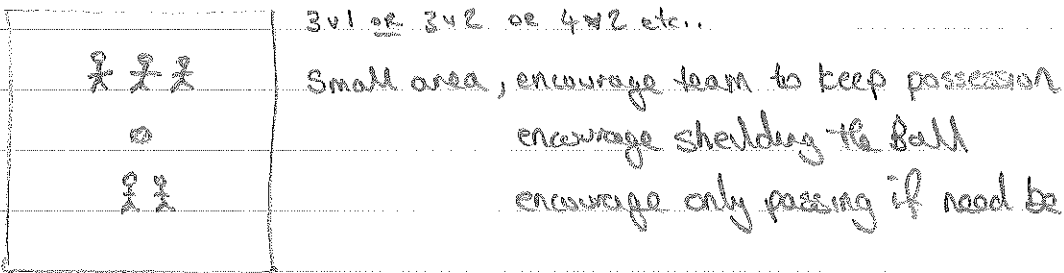 3v1 or 3v2 or 4v2 etc..
Small area, encourage team to keep possession
encourage sheilding the Ball
encourage only passing if need be